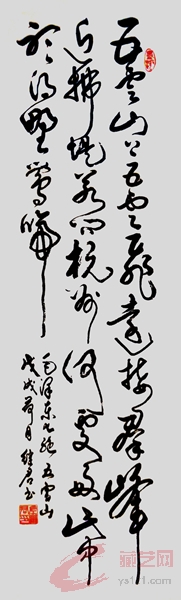 五云山上五云飞远接群峰
近拂堤若问杭州何处好此中
听得野莺啼
毛泽东七绝五云山
戊戌荷月继君书
艺网
ys1t1.com